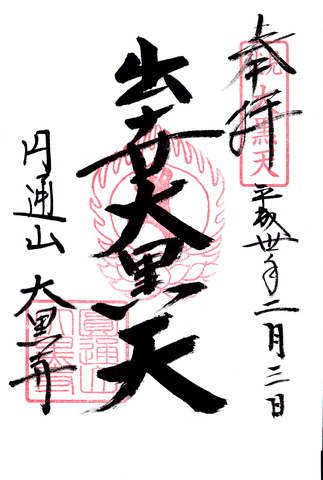 奉拝
平成卅年二月三日
出世大黒天
円通山 大黒寺
圓通山
大黒寺